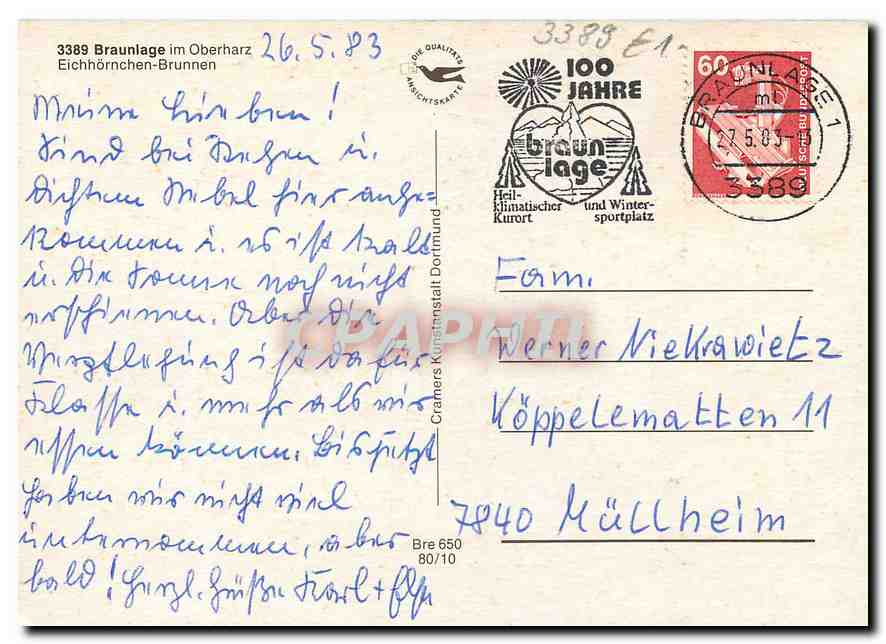 3389 Braunlage im Oberharz
Eichhörnchen-Brunnen
26.5.83
DIE QUALITÄTS
ANSICHTSKARTE
3389 £1-
100
JAHRE
braun
lage
Heil-
klimatischer
Kurort
und Winter-
sportplatz
BRAUNLAGE 1
mb
27.5.83-
3389
60
DEUTSCHE BUNDESPOST
Meine Lieben!
Sind bei Regen u.
dichtem Nebel hier ange=
kommen u. es ist kalt
u. die Sonne noch nicht
erschienen. Aber die
Verpflegung ist dafür
Klasse u. mehr als wir
essen können. Bis jetzt
haben wir nicht viel
unternommen, aber
bald! Herzl. Grüße Karl +
Cramers Kunstanstalt Dortmund
Bre 650
80/10
CPAPHIL
Fam.
Werner Niekrawietz
Köppelematten 11
7840 Müllheim